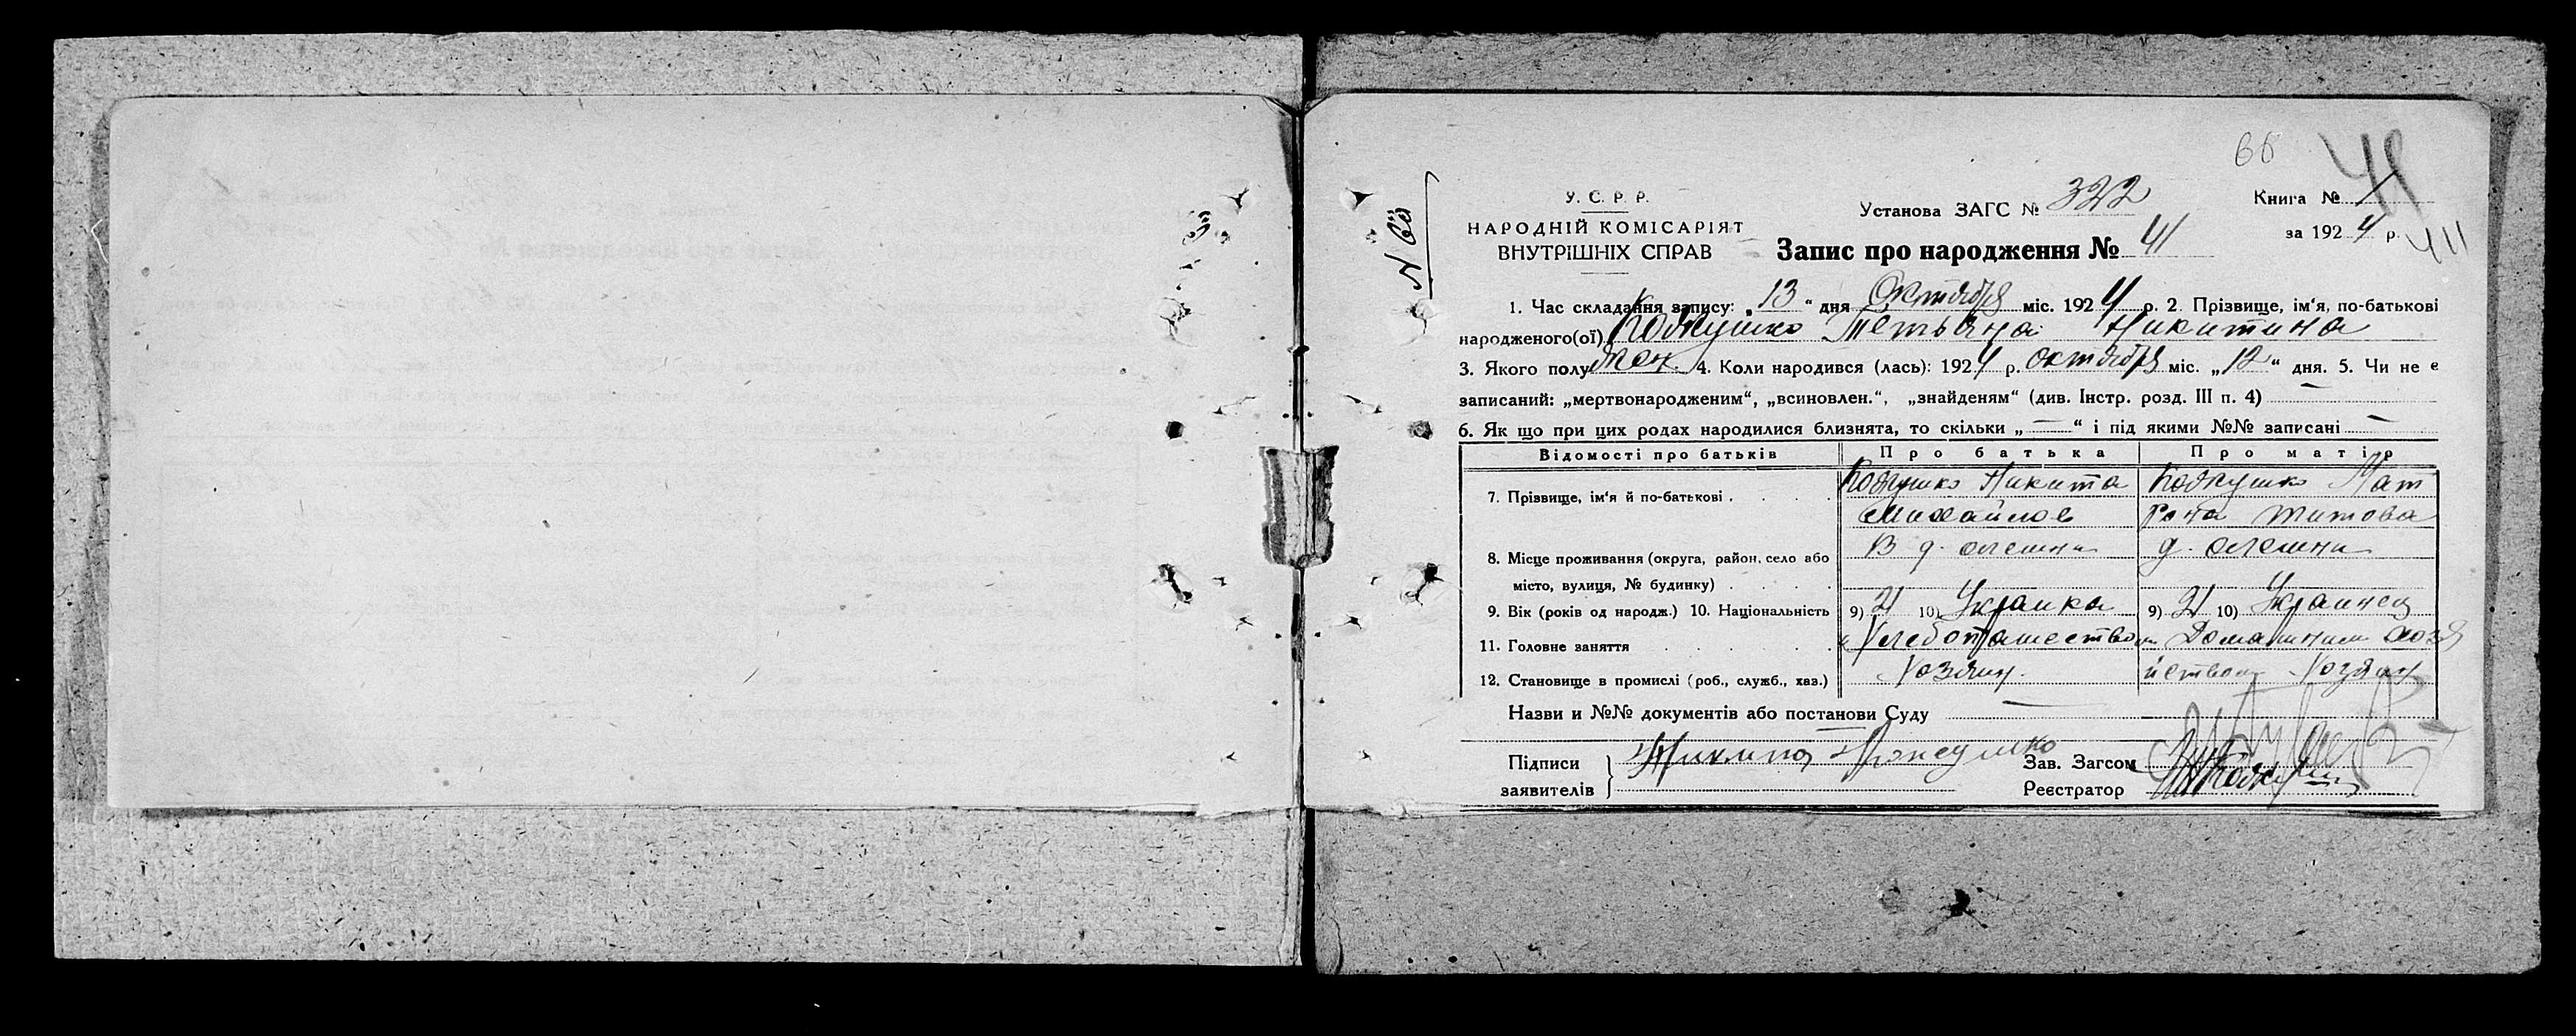 66
41
У. С. Р. Р.
НАРОДНІЙ КОМІСАРІЯТ
ВНУТРІШНІХ СПРАВ
Установа ЗАГС № 322
Книга № 1
за 1924 р.
Запис про народження № 41
1. Час складання запису: „13“ дня Октября міс. 1924 р. 2. Прізвище, ім‘я, по-батькові
народженого(ої) Тетьяна Никитина
3. Якого полу жен. 4. Коли народився (лась): 1924 р. октября міс. „12“ дня. 5. Чи не є
записаний: „мертвонародженим“, „всиновлен.“, „знайденям“ (див. Інстр. розд. III п. 4) —
6. Як що при цих родах народилися близнята, то скільки „—“ і під якими №№ записані —
Відомості про батьків Про батька Про матір
7. Прізвище, ім‘я й по-батькові Никита Мат
Михайлов рона Титова
8. Місце проживання (округа, район, село або В д. д.
місто, вулиця, № будинку)
9. Вік (років од народж.) 10. Національність 9) 21 10) Украинка 9) 21 10) Украинец
11. Головне заняття Хлебопашество Домашним хозя
12. Становище в промислі (роб., служб., хаз.) Хозяин. йством Хозяин
Назви и №№ документів або постанови Суду —
Підписи
заявителів
Зав. Загсом
Реєстратор